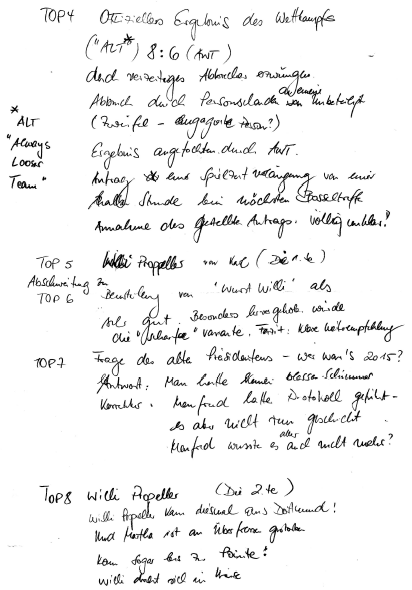 TOP4 Offizielles Ergebnis des Wettkampfs
("ALT"*) 8:6 (AWT)
durch vorzeitiges Abbruches erzwungen.
Abbruch durch Personenschaden von unbeteiligt
(Zweifel - engagierte Person?)
* ALT
"Always
Looser
Team"
Ergebnis angefochten durch AWT.
Antrag eine Spielzeit von einer
halben Stunde beim nächsten Bosseltreffen
Annahme des gestellten Antrags. völlig unklar!
TOP 5 Willi Propeller von Karl (Die 1.te)
Abschweifung zu
TOP 6 Beurteilung von "Wurst Willi" als
sehr gut. Besonders hervorgehob. wurde
die "scharfe" variante. Fazit: klare Kaufempfehlung
TOP7 Frage des alten Präsidentens - wer war's 2015?
Antwort: Man hatte keinen blassen Schimmer
Korrektur: Manfred hatte Protokoll geführt -
es aber nicht geschickt.
Manfred wusste es aber auch nicht mehr?
TOP8 Willi Propeller (Die 2.te)
Willi Propeller kam diesmal aus Dortmund!
Und Martha ist an gestorben
Kam sogar bis zur Pointe!
Willi dreht sich im Kreise